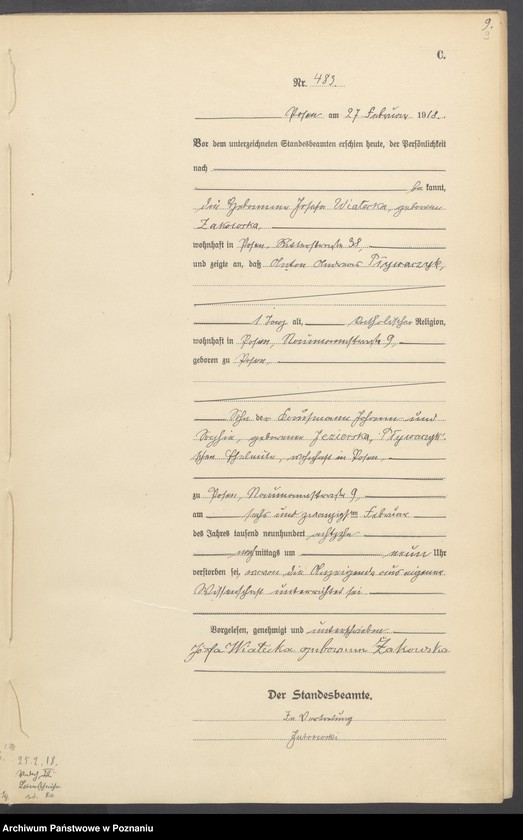 9.
C.
Nr. 483.
Posen am 27 Februar 1918.
Vor dem unterzeichneten Standesbeamten erschien heute, der Persönlichkeit
nach
bekannt,
die Hebamme Josefa Wialecka, geborene
Zakowska,
wohnhaft in Posen, Ritterstraße 38,
und zeigte an, daß Anton Andreas Pływaczyk,
1 Tag alt, katholischer Religion,
wohnhaft in Posen, Naumannstraße 9,
geboren zu Posen,
Sohn der Kaufmann Johann und
Sophie, geborener Jeziorska, Pływaczyk-
schen Eheleute, wohnhaft in Posen,
zu Posen, Naumannstraße 9,
am sechs und zwanzigsten Februar
des Jahres tausend neunhundert achtzehn
nachmittags um neun Uhr
verstorben sei, wovon die Anzeigende aus eigener
Wissenschaft unterrichtet sei.
Vorgelesen, genehmigt und unterschrieben
Józefa Wialecka geborene Żakowska
Der Standesbeamte.
In Vertretung
25.2.18.
Archiwum Państwowe w Poznaniu